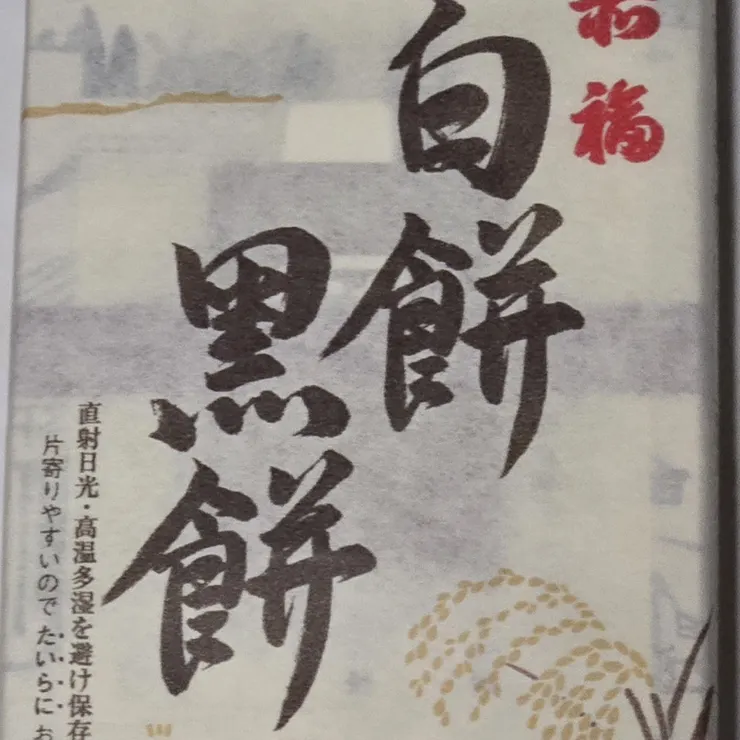 福
白餅
黒餅
直射日光・高温多湿を避け保存
片寄りやすいので たいらに お